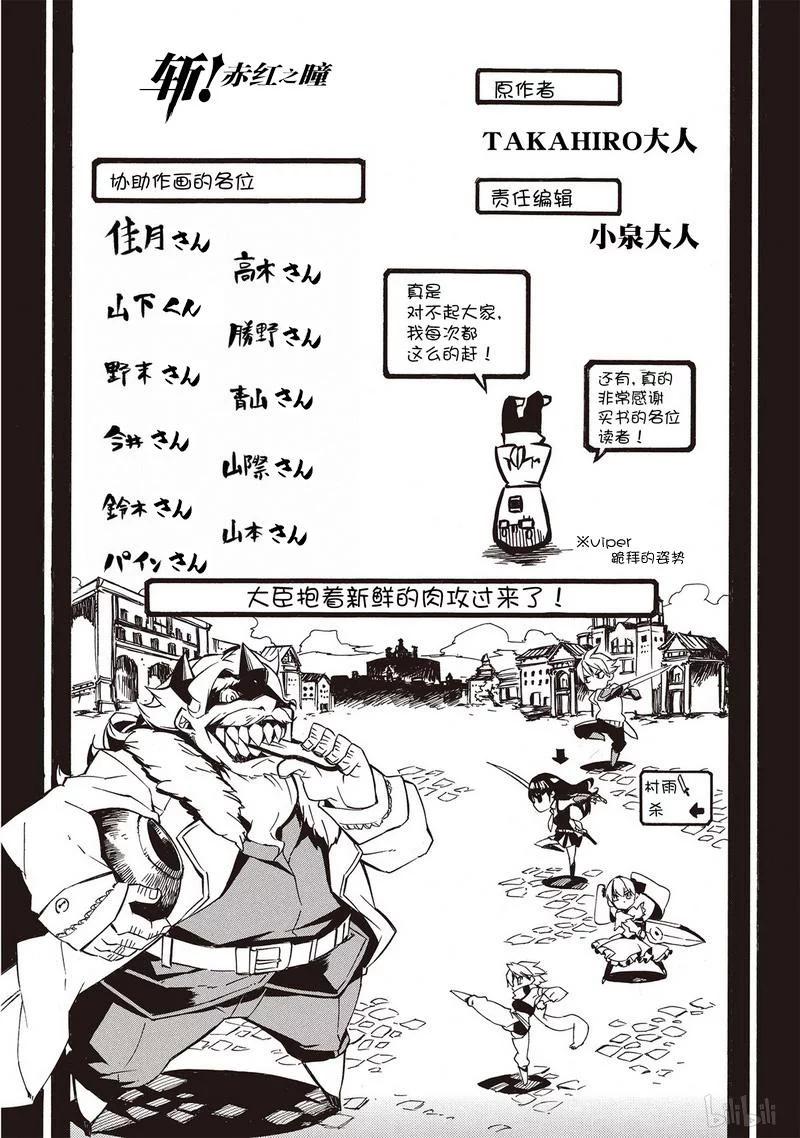 斩！赤红之瞳
原作者
TAKAHIRO大人
责任编辑
小泉大人
协助作画的各位
佳月さん
高木さん
山下くん
勝野さん
野末さん
青山さん
今井さん
山際さん
鈴木さん
山本さん
パインさん
真是
对不起大家，
我每次都
这么的赶！
还有，真的
非常感谢
买书的各位
读者！
※viper
跪拜的姿势
大臣抱着新鲜的肉攻过来了！
村雨
杀
bilibili